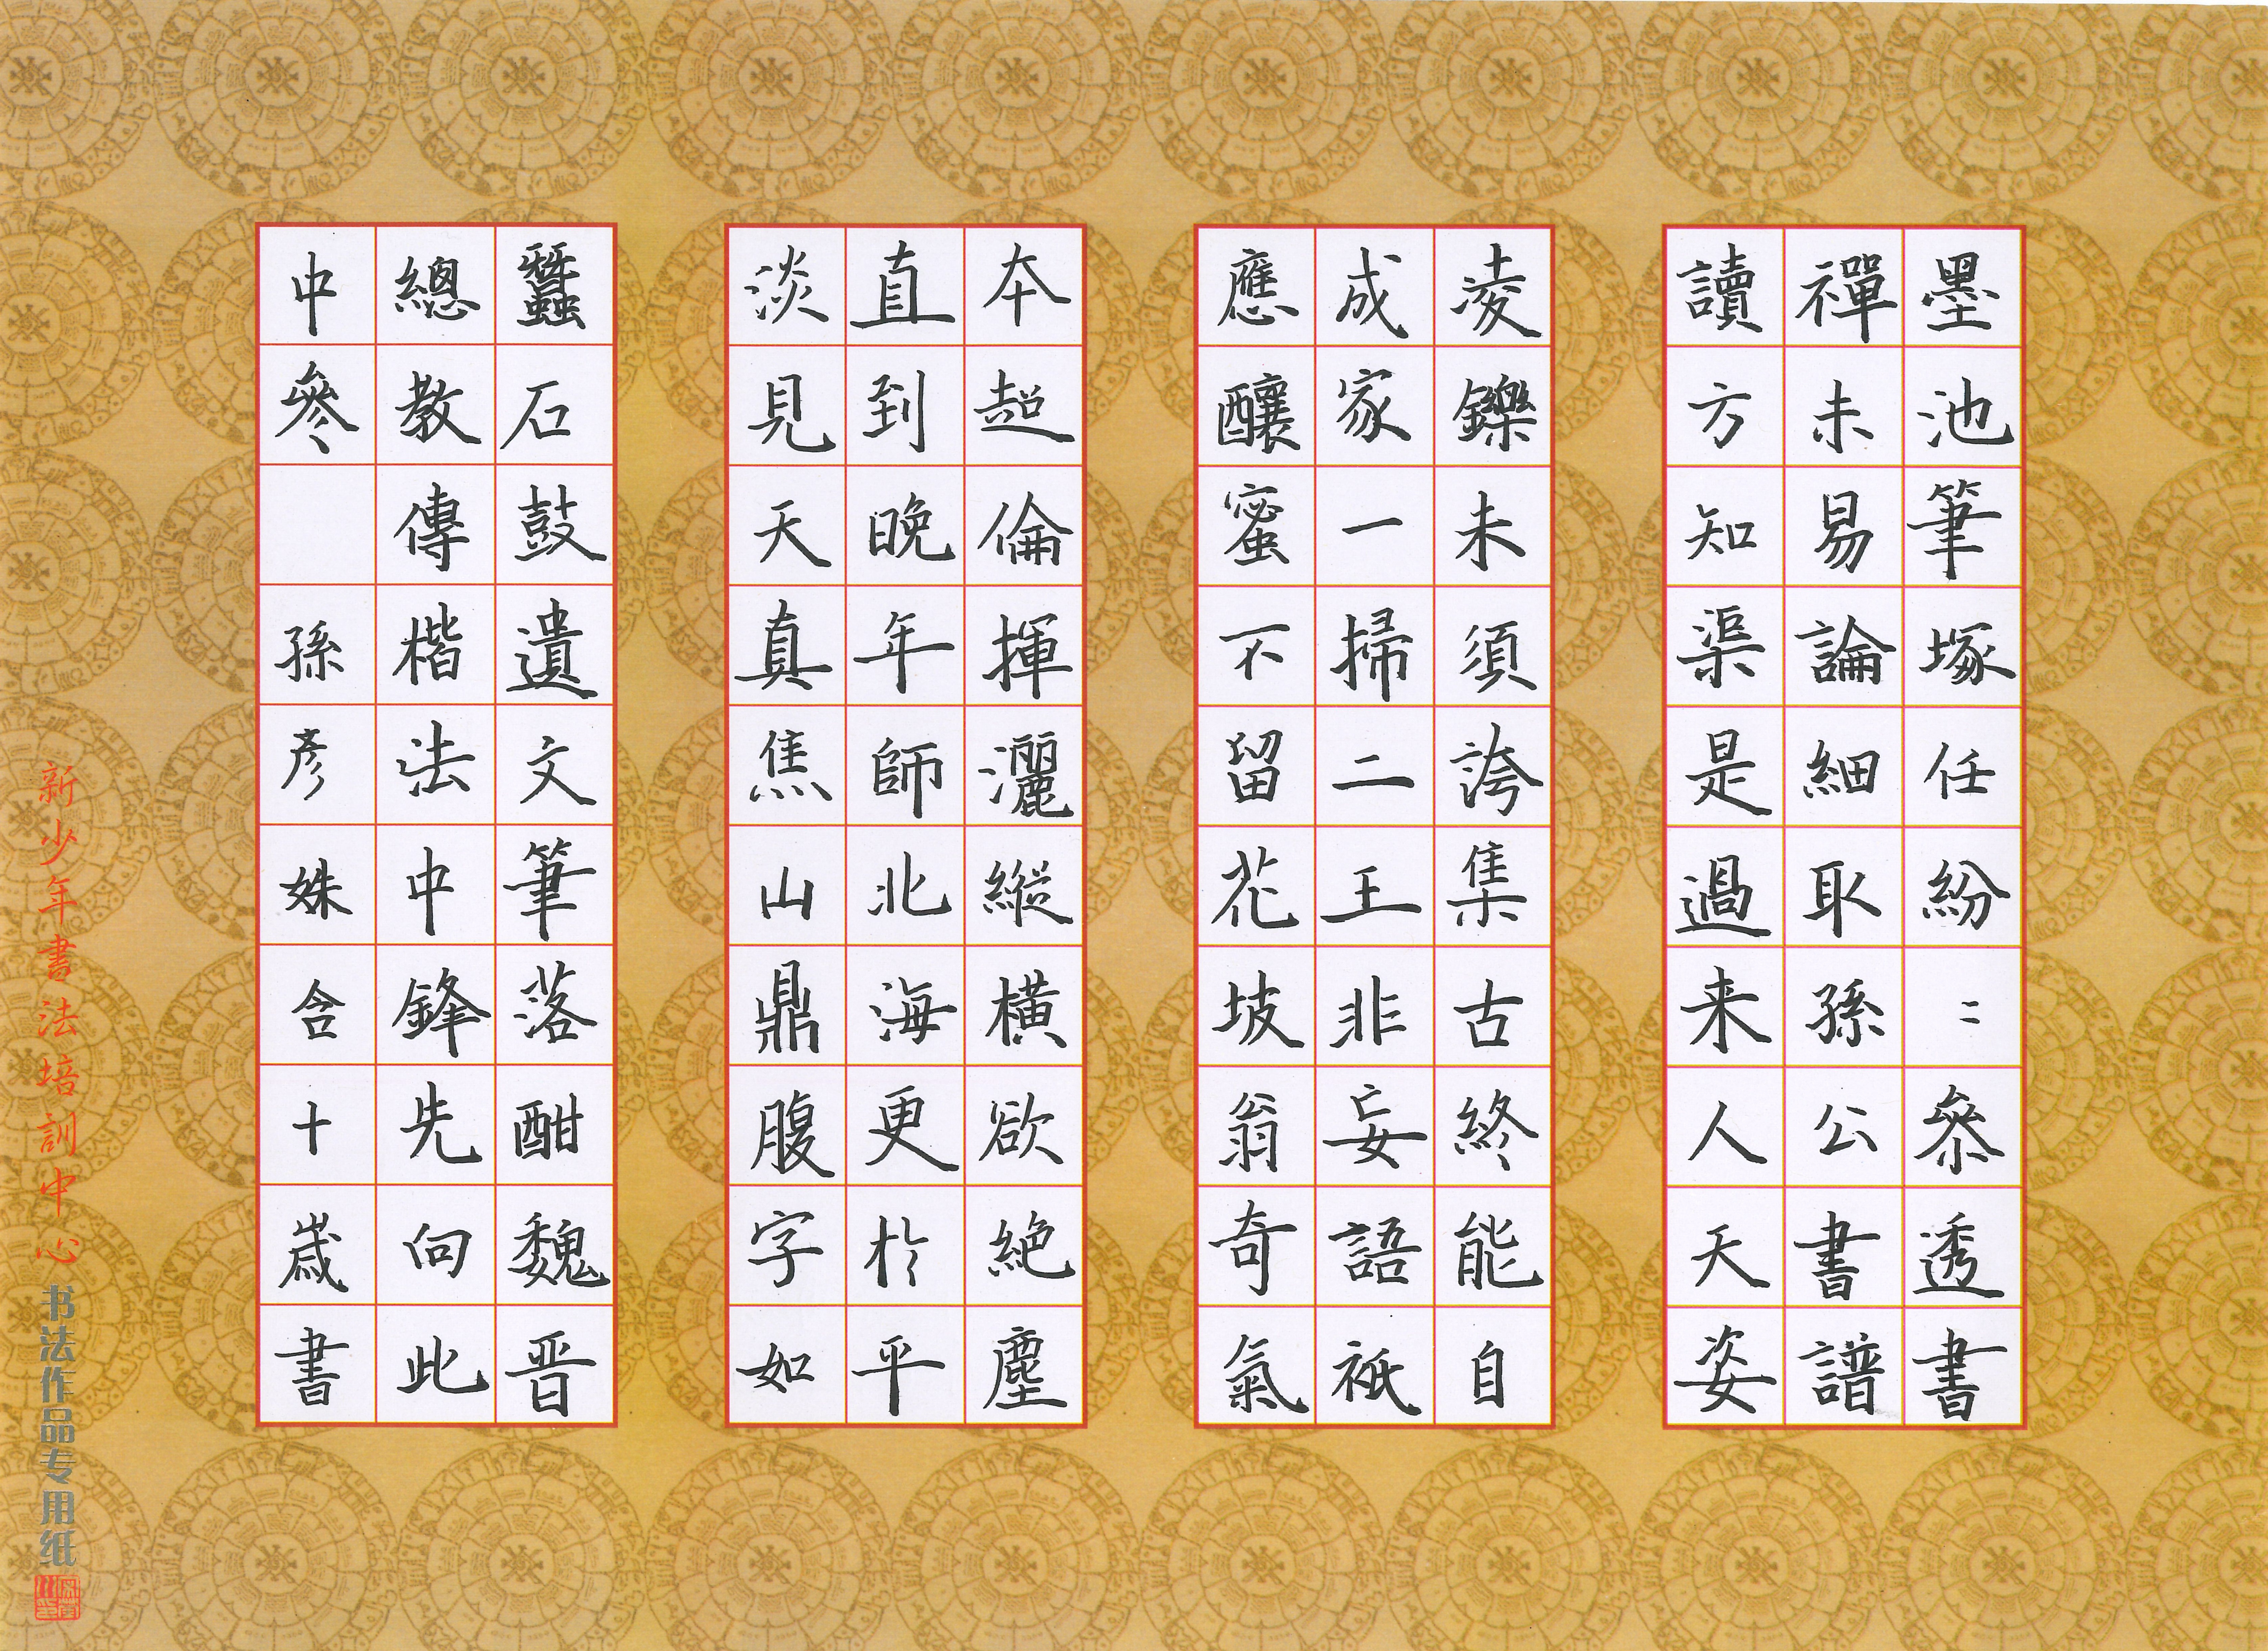 墨池筆塚任紛〻參透書
禪未易論細取孫公書譜
讀方知渠是過来人天姿
凌鑠未須誇集古終能自
成家一掃二王非妄語衹
應釀蜜不留花坡翁奇氣
本超倫揮灑縱橫欲絕塵
直到晚年師北海更於平
淡見天真焦山鼎腹字如
蠶石鼓遺文筆落酣魏晋
總教傳楷法中鋒先向此
中參
孫彥姝含十歲書
新少年書法培訓中心
书法作品专用纸